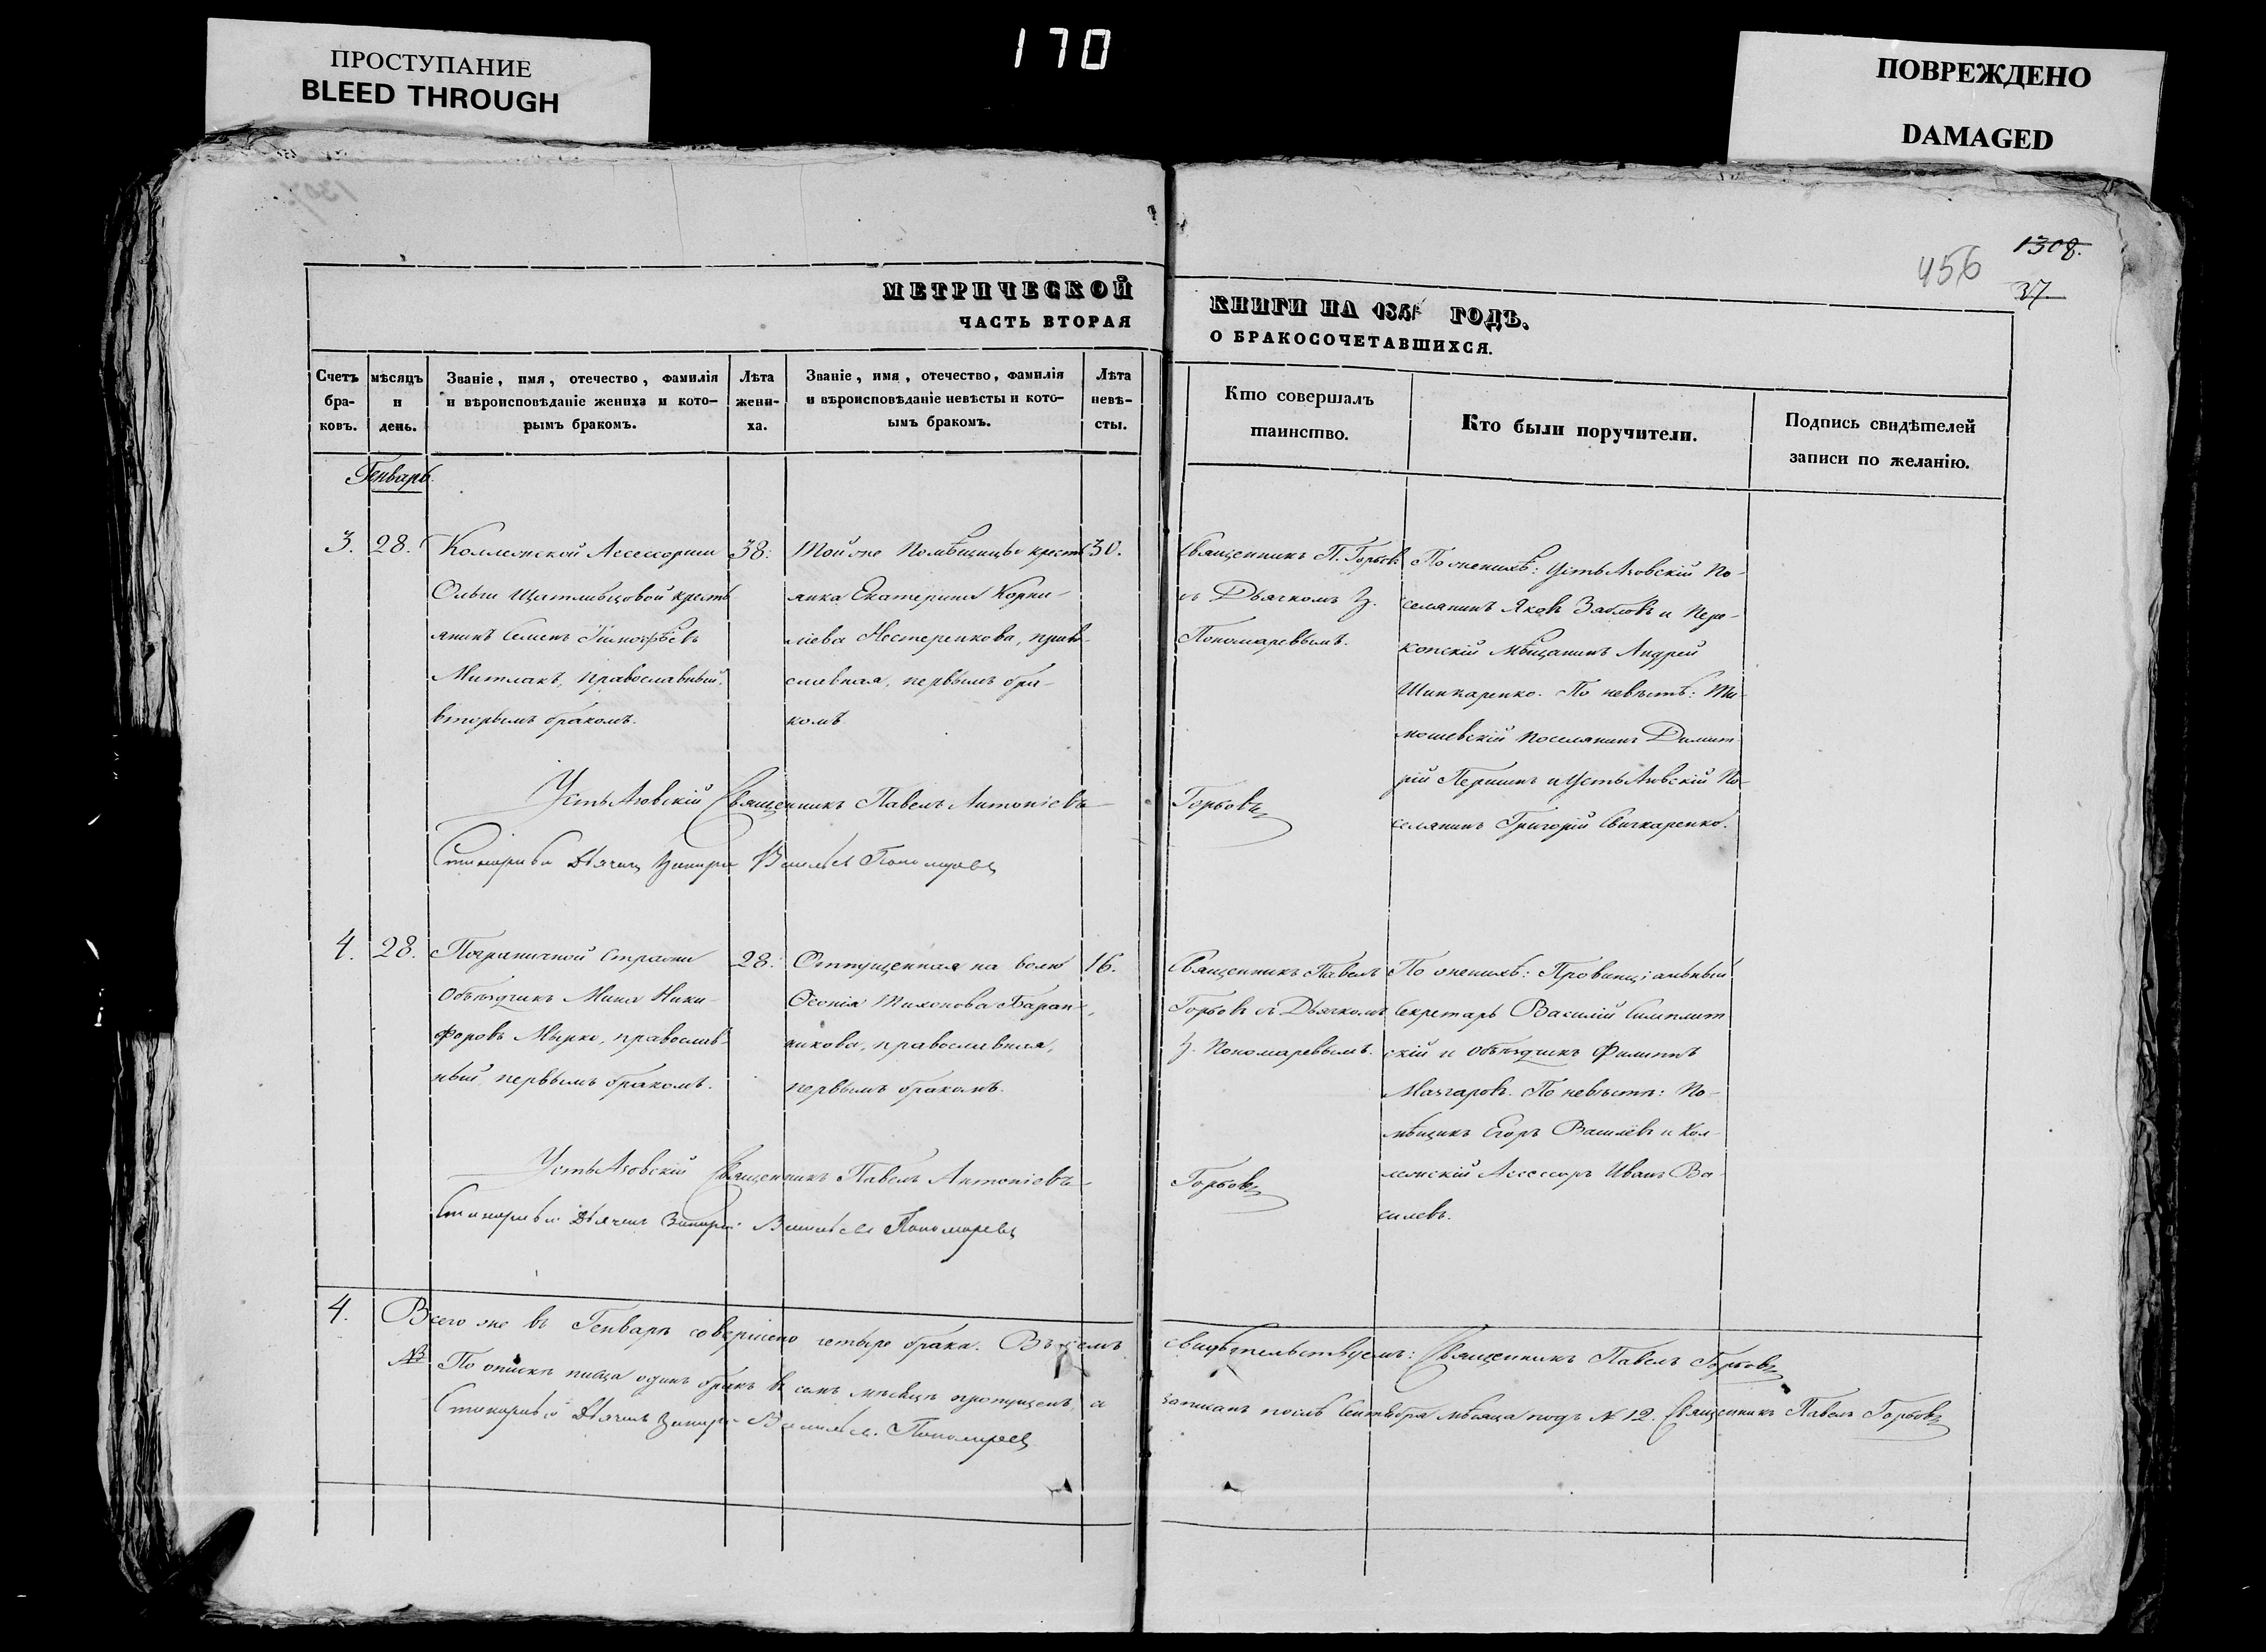 170
ПРОСТУПАНИЕ
BLEED THROUGH
ПОВРЕЖДЕНО
DAMAGED
1308.
456
37
МЕТРИЧЕСКОЙ
ЧАСТЬ ВТОРАЯ
КНИГИ НА 185 ГОДЪ.
О БРАКОСОЧЕТАВШИХСЯ.
Счетъ бра-ковъ.
мѣсяцъ и день.
Званіе, имя, отечество, фамилія
и вѣроисповѣданіе жениха и кото-
рымъ бракомъ.
Лѣта жени-ха.
Званіе, имя, отечество, фамилія
и вѣроисповѣданіе невѣсты и кото-
ымъ бракомъ.
Лѣта невѣ-сты.
Кто совершалъ
таинство.
Кто были поручители.
Подпись свидѣтелей
записи по желанію.
Генварь.
3.
28.
Коллежской Ассесорши
Ольги Щатливцовой кресть
янинъ Семенъ Тимофѣевъ
Митлакъ, православный,
вторымъ бракомъ.
38.
Той же Помѣщицы крест
янка Екатерина Корни-
ліева Нестеренкова, право-
славная, первымъ бра-
комъ
30.
Священникъ П. Горбовъ
съ Дьячкомъ З.
Пономаревымъ.
По женихѣ: Усть Азовскій По-
селянинъ Яковъ Зябловъ и Пере-
копскій Мѣщанинъ Андрей
Шинкаренко. По невѣстѣ: Ти-
мошевскій поселянинъ Димит
рій Першинъ и Усть Азовскій По-
селянинъ Григорій Свичкаренко.
Усть Азовскій Священникъ Павелъ Антоніевъ
Горбовъ
Дьячекъ Захаръ Васильевъ Пономаревъ
4.
28.
Пограничной Стражи
Объѣздчикъ Мина Ники-
форовъ Мырко, православ-
ный, первымъ бракомъ.
28.
Отпущенная на волю
Ѳеонія Тихонова Баран-
никова, православная,
первымъ бракомъ.
16.
Священникъ Павелъ
Горбовъ съ Дьячкомъ
З. Пономаревымъ.
По женихѣ: Провинціальный
Секретарь Василій Симплит
скій и Объѣздчикъ Филиппъ
Мачгаровъ. По невѣстѣ: По-
мѣщикъ Егоръ Василевъ и Кол-
лежскій Ассессоръ Иванъ Ва-
силевъ.
Усть Азовскій Священникъ Павелъ Антоніевъ
Горбовъ
Дьячекъ Захаръ Васильевъ Пономаревъ
4.
Всего же въ Генварѣ совершено четыре брака. Въ чемъ
свидѣтельствуемъ: Священникъ Павелъ Горбовъ
NB По опискѣ писца одинъ бракъ въ семъ мѣсяцѣ пропущенъ, а
записанъ послѣ Сентября мѣсяца подъ № 12. Священникъ Павелъ Горбовъ
Дьячекъ Захаръ Васильевъ Пономаревъ